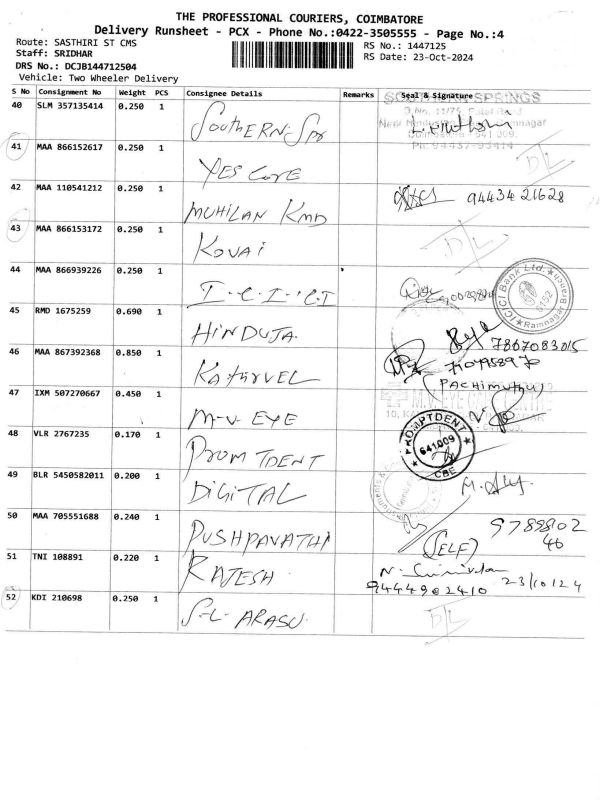 THE PROFESSIONAL COURIERS, COIMBATORE
Delivery Runsheet - PCX - Phone No.:0422-3505555 - Page No.:4
Route: SASTHIRI ST CMS
Staff: SRIDHAR
DRS No.: DCJB144712504
Vehicle: Two Wheeler Delivery
RS No.: 1447125
RS Date: 23-Oct-2024
S No Consignment No Weight PCS Consignee Details Remarks Seal & Signature
40 SLM 357135414 0.250 1 SOUTHERN SPR
SPRINGS
41 MAA 866152617 0.250 1 YES CORE DL
42 MAA 110541212 0.250 1 MUHILAN KMD 9443421628
43 MAA 866153172 0.250 1 KOVAI DL
44 MAA 866939226 0.250 1 I-C-I-C-I
ICICI Bank Ltd.
Ramnagar
45 RMD 1675259 0.690 1 HINDUJA 7867083015
46 MAA 867392368 0.850 1 KATHIRVEL
(PACHIMUTHU)
47 IXM 507270667 0.450 1 M-V-EYE
M.V.EYE
48 VLR 2767235 0.170 1 PROMTDENT
PROMPTDENT
641.009
CBE
49 BLR 5450582011 0.200 1 DIGITAL
50 MAA 705551688 0.240 1 PUSHPAVATHI 9789802
46
(SELF)
51 TNI 108891 0.220 1 RAJESH
9444902410 23/10/24
52 KDI 210698 0.250 1 S-L-ARASU DL